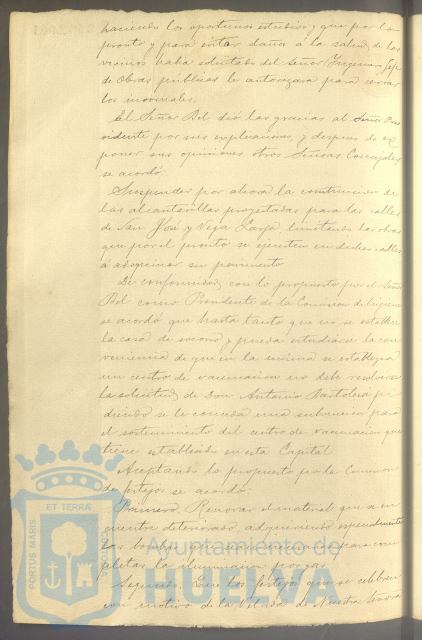 haciendo los oportunos estudios y que por lo
pronto y para evitar daños á la salud de los
vecinos había solicitado del Señor Ingeniero Jefe
de Obras públicas le autorizara para cerrar
los imornales.
El Señor Bel dió las gracias al Señor Pre
sidente por sus explicaciones, y despues de ex
poner sus opiniones otros Señores Concejales
se acordó:
Suspender por ahora la construccion de
las alcantarillas proyectadas para las calles
de San José y Vega Larga limitando las obras
que por el pronto se ejecuten en dichas calles
á adoquinar su pavimento
De conformidad con lo propuesto por el Señor
Bel como Presidente de la Comision de
se acordó que hasta tanto que no se establezca
la casa de socorro y pueda estudiarse la con
veniencia de que en la misma se establezca
un centro de vacunacion no debe resolverse
la solicitud de Don Antonio pi
diendo se le conceda una subvencion para
el sostenimiento del centro de vacunacion que
tiene establecido en esta Capital
Aceptando lo propuesto por la Comision
de festejos se acordó:
Primero. Renovar el material que se en
cuentre deteriorado, adquiriendo especialmente
las bombas que sean necesarias para com
pletar la iluminacion por gas.
Segundo. Que los festejos que se celebren
con motivo de la Velada de Nuestra Señora
ET TERRA
PORTUS MARIS
CUSTODIA
Ayuntamiento de
HUELVA